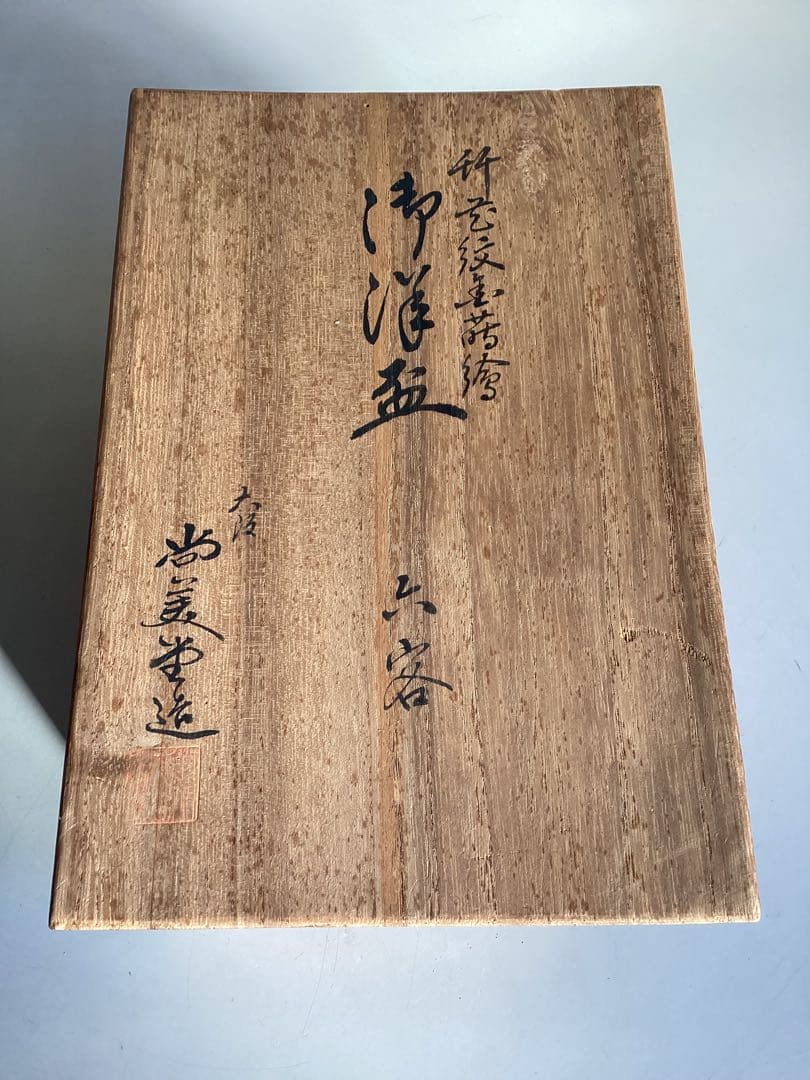 花紋金蒔繪
御洋盃 六客
大阪
尚美堂造